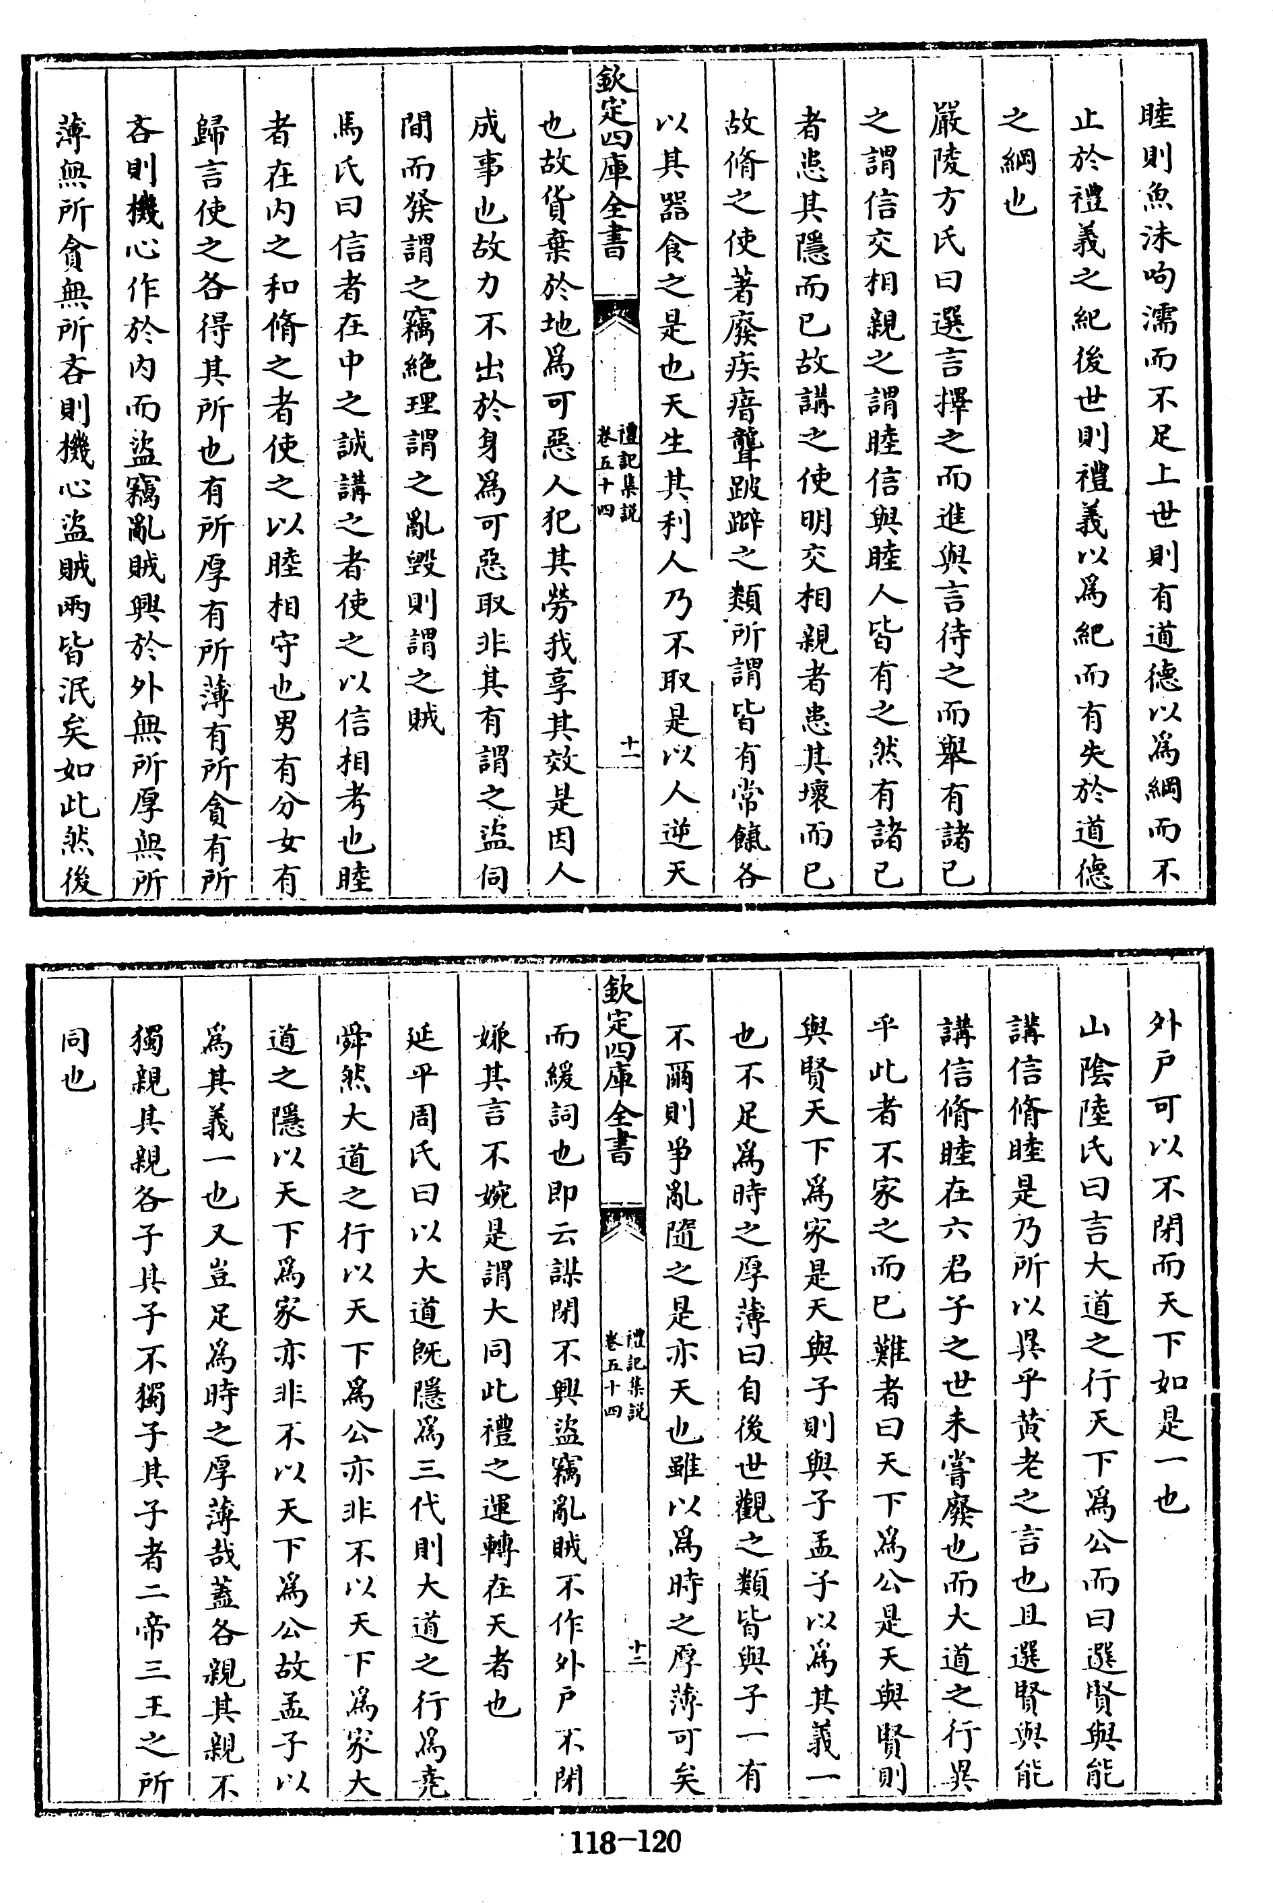 睦則魚沫呴濡而不足上世則有道德以為綱而不
止於禮義之紀後世則禮義以為紀而有失於道德
之綱也
嚴陵方氏曰選言擇之而進與言待之而舉有諸已
之謂信交相親之謂睦信與睦人皆有之然有諸已
者患其隱而已故講之使明交相親者患其壞而已
故脩之使著廢疾瘖聾跛躃之類所謂皆有常餼各
以其器食之是也天生其利人乃不取是以人逆天
欽定四庫全書
禮記集説
卷五十四
十一
也故貨棄於地爲可惡人犯其勞我享其效是因人
成事也故力不出於身爲可惡取非其有謂之盜伺
間而發謂之竊絶理謂之亂毀則謂之賊
馬氏曰信者在中之誠講之者使之以信相考也睦
者在内之和脩之者使之以睦相守也男有分女有
歸言使之各得其所也有所厚有所薄有所貪有所
吝則機心作於内而盜竊亂賊興於外無所厚無所
薄無所貪無所吝則機心盜賊兩皆泯矣如此然後
外戶可以不閉而天下如是一也
山陰陸氏曰言大道之行天下爲公而曰選賢與能
講信脩睦是乃所以異乎黄老之言也且選賢與能
講信脩睦在六君子之世未嘗廢也而大道之行異
乎此者不家之而已難者曰天下爲公是天與賢則
與賢天下爲家是天與子則與子孟子以爲其義一
也不足爲時之厚薄曰自後世觀之類皆與子一有
不爾則爭亂隨之是亦天也雖以爲時之厚薄可矣
欽定四庫全書
禮記集説
卷五十四
十二
而緩詞也即云謀閉不興盜竊亂賊不作外戶不閉
嫌其言不婉是謂大同此禮之運轉在天者也
延平周氏曰以大道既隱爲三代則大道之行爲堯
舜然大道之行以天下爲公亦非不以天下爲家大
道之隱以天下爲家亦非不以天下爲公故孟子以
爲其義一也又豈足爲時之厚薄哉蓋各親其親不
獨親其親各子其子不獨子其子者二帝三王之所
同也
118-120